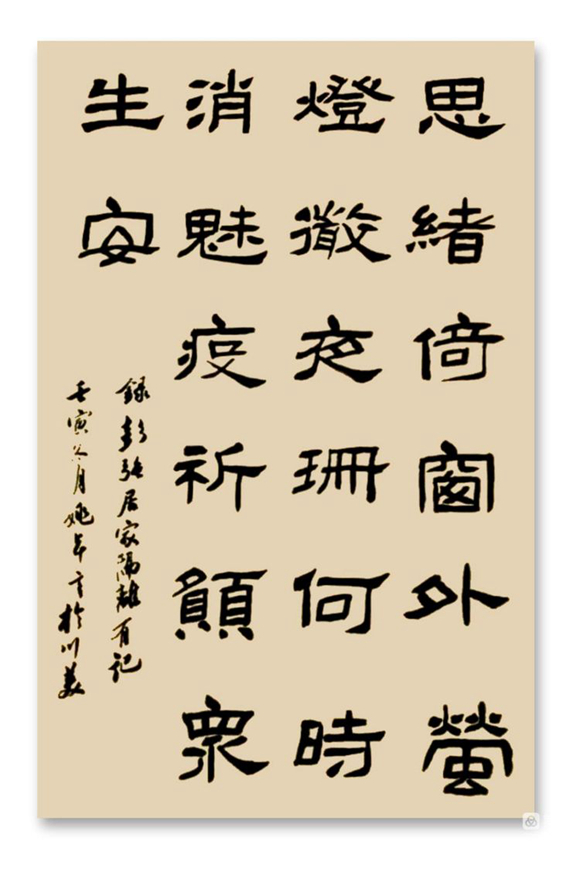 思緒倚窗外螢
燈徹夜珊何時
消魅疫祈願眾
生安
錄彭強居家隔離有記
壬寅冬月姚於川美